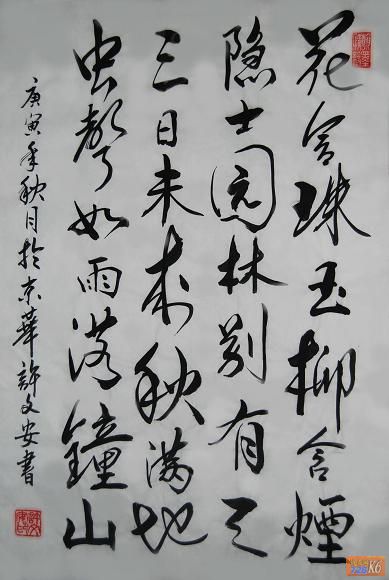 花含珠玉柳含煙
隐士園林别有天
三日未來秋满地
虫聲如雨落鐘山
庚寅年秋月於京華許文安書
K6